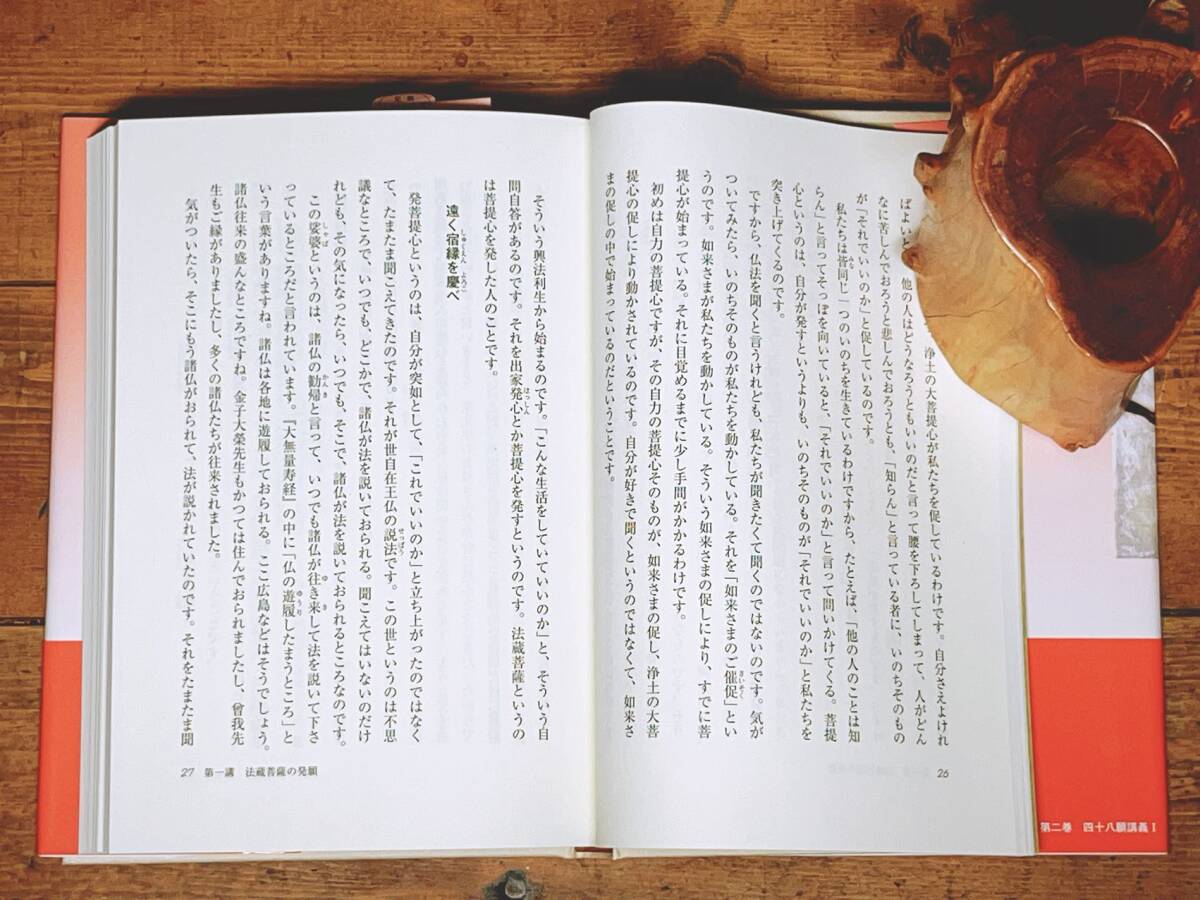 浄土の大菩提心が私たちを促しているわけです。自分さえよけれ
ばよいと
他の人はどうなろうともいいのだと言って腰を下ろしてしまって、人がどん
なに苦しんでおろうと悲しんでおろうとも、「知らん」と言っている者に、いのちそのもの
が「それでいいのか」と促しているのです。
私たちは皆同じ一つのいのちを生きているわけですから、たとえば、「他の人のことは知
らん」と言ってそっぽを向いていると、「それでいいのか」と言って問いかけてくる。菩提
心というのは、自分が発すというよりも、いのちそのものが「それでいいのか」と私たちを
突き上げてくるのです。
ですから、仏法を聞くと言うけれども、私たちが聞きたくて聞くのではないのです。気が
ついてみたら、いのちそのものが私たちを動かしている。それを「如来さまのご催促」とい
うのです。如来さまが私たちを動かしている。そういう如来さまの促しにより、すでに菩
提心が始まっている。それに目覚めるまでに少し手間がかかるわけです。
初めは自力の菩提心ですが、その自力の菩提心そのものが、如来さまの促し、浄土の大菩
提心の促しにより動かされているのです。自分が好きで聞くというのではなくて、如来さ
まの促しの中で始まっているのだということです。
26
そういう興法利生から始まるのです。「こんな生活をしていていいのか」と、そういう自
問自答があるのです。それを出家発心とか菩提心を発すというのです。法蔵菩薩というの
は菩提心を発した人のことです。
遠く宿縁を慶べ
発菩提心というのは、自分が突如として、「これでいいのか」と立ち上がったのではなく
て、たまたま聞こえてきたのです。それが世自在王仏の説法です。この世というのは不思
議なところで、いつでも、どこかで、諸仏が法を説いておられる。聞こえてはいないのだけ
れども、その気になったら、いつでも、そこで、諸仏が法を説いておられるところなのです。
この娑婆というのは、諸仏の勧帰と言って、いつでも諸仏が往き来して法を説いて下さ
っているところだと言われています。『大無量寿経』の中に「仏の遊履したまうところ」と
いう言葉がありますね。諸仏は各地に遊履しておられる。ここ広島などはそうでしょう。
諸仏往来の盛んなところですね。金子大榮先生もかつては住んでおられましたし、曾我先
生もご縁がありましたし、多くの諸仏たちが往来されました。
気がついたら、そこにもう諸仏がおられて、法が説かれていたのです。それをたまたま聞
27 第一講 法蔵菩薩の発願
第二巻 四十八願講義Ⅰ